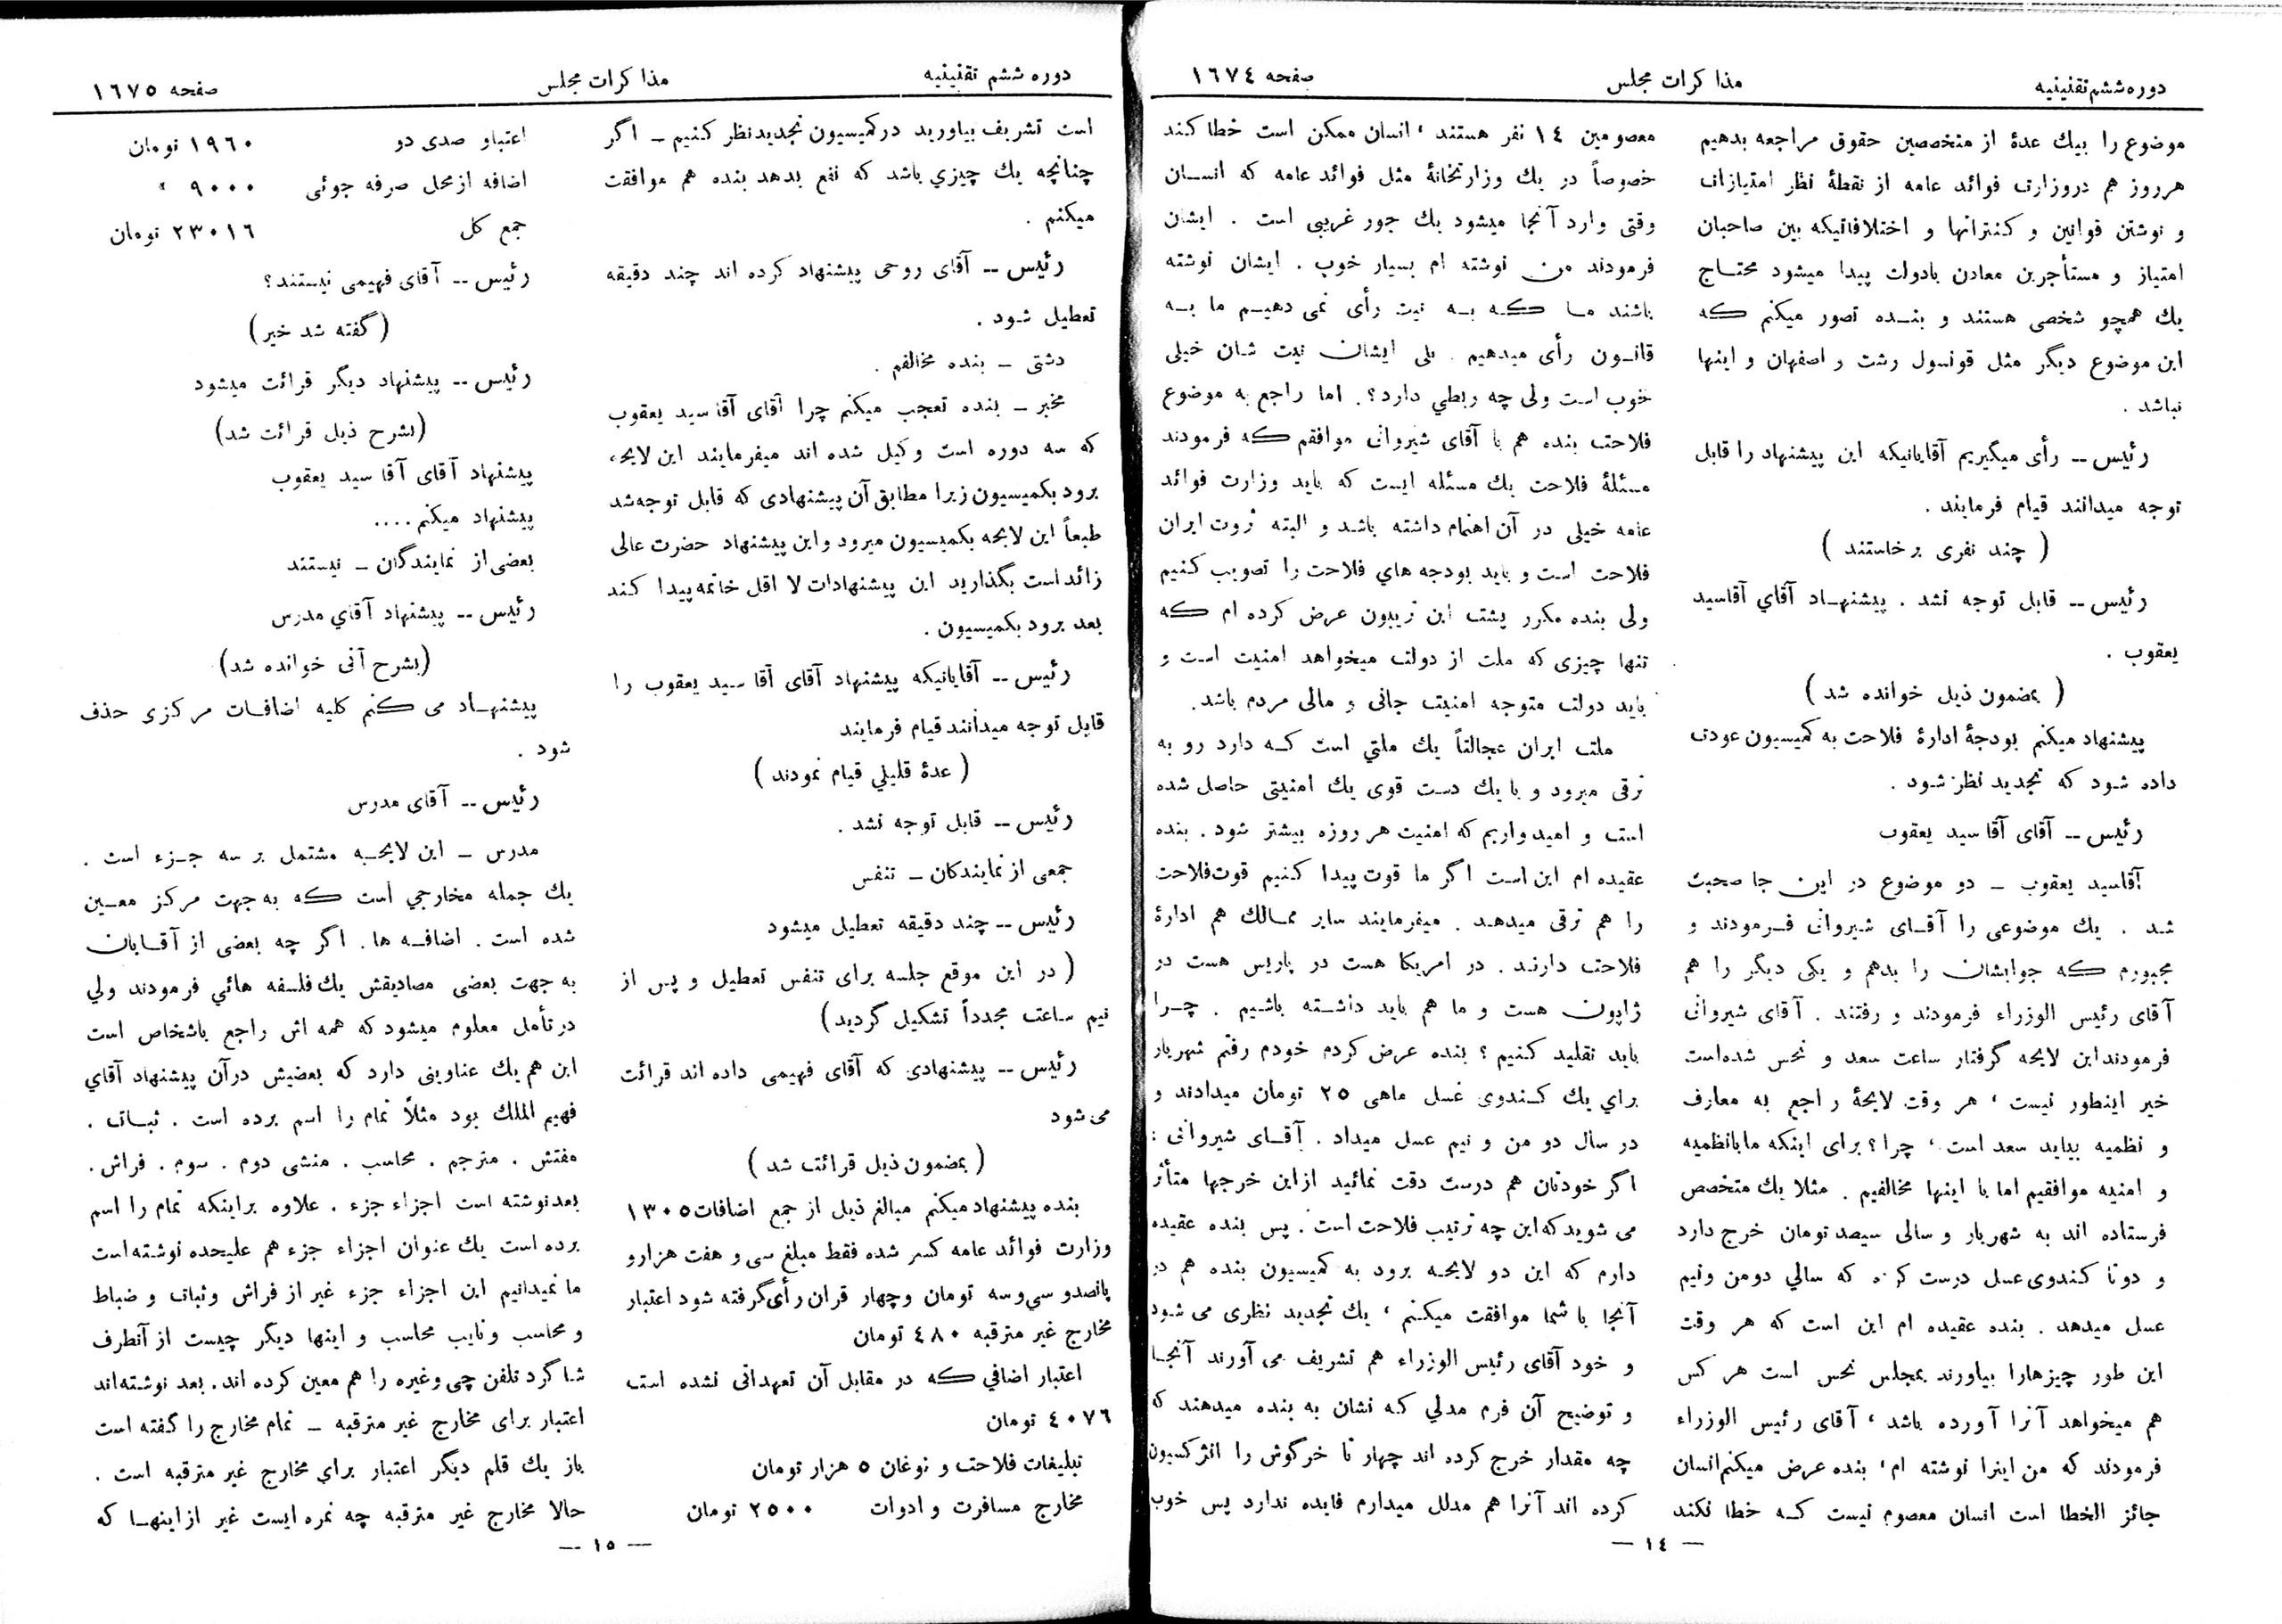 دوره ششم تقنینیه
مذاکرات مجلس
صفحه ١٦٧٤
موضوع را بیك عدهٔ از متخصصین حقوق مراجعه بدهیم
هرروز هم دروزارت فوائد عامه از نقطهٔ نظر امتیازات
و نوشتن قوانین و کنتراتها و اختلافاتیکه بین صاحبان
امتیاز و مستأجرین معادن بادولت پیدا میشود محتاج
یك همچو شخصی هستند و بنده تصور میکنم که
این موضوع دیگر مثل قونسول رشت و اصفهان و اینها
نباشد .
رئیس -- رأی میگیریم آقایانیکه این پیشنهاد را قابل
توجه میدانند قیام فرمایند .
( چند نفری برخاستند )
رئیس -- قابل توجه نشد . پیشنهاد آقاي آقاسید
یعقوب .
( بمضمون ذیل خوانده شد )
پیشنهاد میکنم بودجهٔ ادارهٔ فلاحت به کمیسیون عودت
داده شود که تجدید نظر شود .
رئیس -- آقای آقا سید یعقوب
آقاسید یعقوب - دو موضوع در این جا صحبت
شد . یك موضوعی را آقای شیروانی فرمودند و
مجبورم که جوابشان را بدهم و یکی دیگر را هم
آقای رئیس الوزراء فرمودند و رفتند . آقای شیروانی
فرمودند این لایحه گرفتار ساعت سعد و نحس شده‌است
خیر اینطور نیست ، هر وقت لایحهٔ راجع به معارف
و نظمیه بیاید سعد است ، چرا ؟ برای اینکه مابانظمیه
و امنیه موافقیم اما با اینها مخالفیم . مثلا یك متخصص
فرستاده اند به شهریار و سالی سیصد تومان خرج دارد
و دوتا کندوی عسل درست کرده که سالي دومن ونیم
عسل میدهد . بنده عقیده ام این است که هر وقت
این طور چیزهارا بیاورند بمجلس نحس است هر کس
هم میخواهد آنرا آورده باشد ، آقای رئیس الوزراء
فرمودند که من اینرا نوشته ام ، بنده عرض میکنم انسان
جائز الخطا است انسان معصوم نیست که خطا نکند
معصومین ١٤ نفر هستند ، انسان ممکن است خطا کند
خصوصاً در یك وزارتخانهٔ مثل فوائد عامه که انسان
وقتی وارد آنجا میشود یك جور غریبی است . ایشان
فرمودند من نوشته ام بسیار خوب . ایشان نوشته
باشند ما که به نیت رأی نمی دهیم ما به
قانون رأی میدهیم . بلی ایشان نیت شان خیلی
خوب است ولی چه ربطي دارد ؟. اما راجع به موضوع
فلاحت بنده هم با آقای شیروانی موافقم که فرمودند
مسئلهٔ فلاحت یك مسئله ایست که باید وزارت فوائد
عامه خیلی در آن اهتمام داشته باشد و البته ثروت ایران
فلاحت است و باید بودجه هاي فلاحت را تصویب کنیم
ولی بنده مکرر پشت این تریبون عرض کرده ام که
تنها چیزی که ملت از دولت میخواهد امنیت است و
باید دولت متوجه امنیت جانی و مالی مردم باشد .
ملت ایران عجالتاً یك ملتي است که دارد رو به
ترقی میرود و با یك دست قوی یك امنیتی حاصل شده
است و امیدواریم که امنیت هر روزه بیشتر شود . بنده
عقیده ام این است اگر ما قوت پیدا کنیم قوت‌فلاحت
را هم ترقی میدهد . میفرمایند سایر ممالك هم ادارهٔ
فلاحت دارند . در امریکا هست در پاریس هست در
ژاپون هست و ما هم باید داشته باشیم . چرا
باید تقلید کنیم ؟ بنده عرض کردم خودم رفتم شهریار
براي یك کندوی عسل ماهی ٢٥ تومان میدادند و
در سال دو من و نیم عسل میداد . آقای شیروانی :
اگر خودتان هم درست دقت نمائید ازاین خرجها متأثر
می شوید که این چه ترتیب فلاحت است . پس بنده عقیده
دارم که این دو لایحه برود به کمیسیون بنده هم در
آنجا با شما موافقت میکنم ، یك تجدید نظری می شود
و خود آقای رئیس الوزراء هم تشریف می آورند آنجا
و توضیح آن فرم مدلي که نشان به بنده میدهند که
چه مقدار خرج کرده اند چهار تا خرگوش را انژکسیون
کرده اند آنرا هم مدلل میدارم فایده ندارد پس خوب
— ١٤ —
دوره ششم تقنینیه
مذاکرات مجلس
صفحه ١٦٧٥
است تشریف بیاورید درکمیسیون تجدیدنظر کنیم - اگر
چنانچه یك چیزي باشد که نفع بدهد بنده هم موافقت
میکنم .
رئیس -- آقای روحی پیشنهاد کرده اند چند دقیقه
تعطیل شود .
دشتی - بنده مخالفم .
مخبر - بنده تعجب میکنم چرا آقای آقا سید یعقوب
که سه دوره است وکیل شده اند میفرمایند این لایحه
برود بکمیسیون زیرا مطابق آن پیشنهادی که قابل توجه شد
طبعاً این لایحه بکمیسیون میرود واین پیشنهاد حضرت عالی
زائد است بگذارید این پیشنهادات لا اقل خاتمه پیدا کند
بعد برود بکمیسیون .
رئیس -- آقایانیکه پیشنهاد آقای آقا سید یعقوب را
قابل توجه میدانند قیام فرمایند
( عدهٔ قلیلي قیام نمودند )
رئیس -- قابل توجه نشد .
جمعی از نمایندکان - تنفس
رئیس -- چند دقیقه تعطیل میشود
( در این موقع جلسه برای تنفس تعطیل و پس از
نیم ساعت مجدداً تشکیل گردید )
رئیس -- پیشنهادی که آقای فهیمی داده اند قرائت
می شود
( بمضمون ذیل قرائت شد )
بنده پیشنهاد میکنم مبالغ ذیل از جمع اضافات ١٣٠٥
وزارت فوائد عامه کسر شده فقط مبلغ سی و هفت هزارو
پانصدو سي‌وسه تومان وچهار قران رأی‌گرفته شود اعتبار
مخارج غیر مترقبه ٤٨٠ تومان
اعتبار اضافي که در مقابل آن تعهداتی نشده است
٤٠٧٦ تومان
تبلیغات فلاحت و نوغان ٥ هزار تومان
مخارج مسافرت و ادوات ٢٥٠٠ تومان
اعتباو صدی دو ١٩٦٠ تومان
اضافه ازمحل صرفه جوئی ٩٠٠٠ «
جمع کل ٢٣٠١٦ تومان
رئیس -- آقای فهیمی نیستند ؟
( گفته شد خیر )
رئیس -- پیشنهاد دیگر قرائت میشود
(بشرح ذیل قرائت شد)
پیشنهاد آقای آقا سید یعقوب
پیشنهاد میکنم ....
بعضی از نمایندگان - نیستند
رئیس -- پیشنهاد آقاي مدرس
(بشرح آتی خوانده شد)
پیشنهاد می کنم کلیه اضافات مرکزی حذف
شود .
رئیس -- آقای مدرس
مدرس - این لایحه مشتمل بر سه جزء است .
یك جمله مخارجي است که به جهت مرکز معین
شده است . اضافه ها . اگر چه بعضی از آقایان
به جهت بعضی مصادیقش یك فلسفه هائي فرمودند ولي
درتأمل معلوم میشود که همه اش راجع باشخاص است
این هم یك عناوینی دارد که بعضیش درآن پیشنهاد آقاي
فهیم الملك بود مثلاً تمام را اسم برده است . ثبات .
مفتش . مترجم . محاسب . منشی دوم . سوم . فراش .
بعدنوشته است اجزاء جزء . علاوه براینکه تمام را اسم
برده است یك عنوان اجزاء جزء هم علیحده نوشته است
ما نمیدانیم این اجزاء جزء غیر از فراش وثبات و ضباط
و محاسب ونایب محاسب و اینها دیگر چیست از آنطرف
شاگرد تلفن چی وغیره را هم معین کرده اند . بعد نوشته‌اند
اعتبار برای مخارج غیر مترقبه - تمام مخارج را گفته است
باز یك قلم دیگر اعتبار براي مخارج غیر مترقبه است .
حالا مخارج غیر مترقبه چه نمره ایست غیر ازاینها که
— ١٥ —